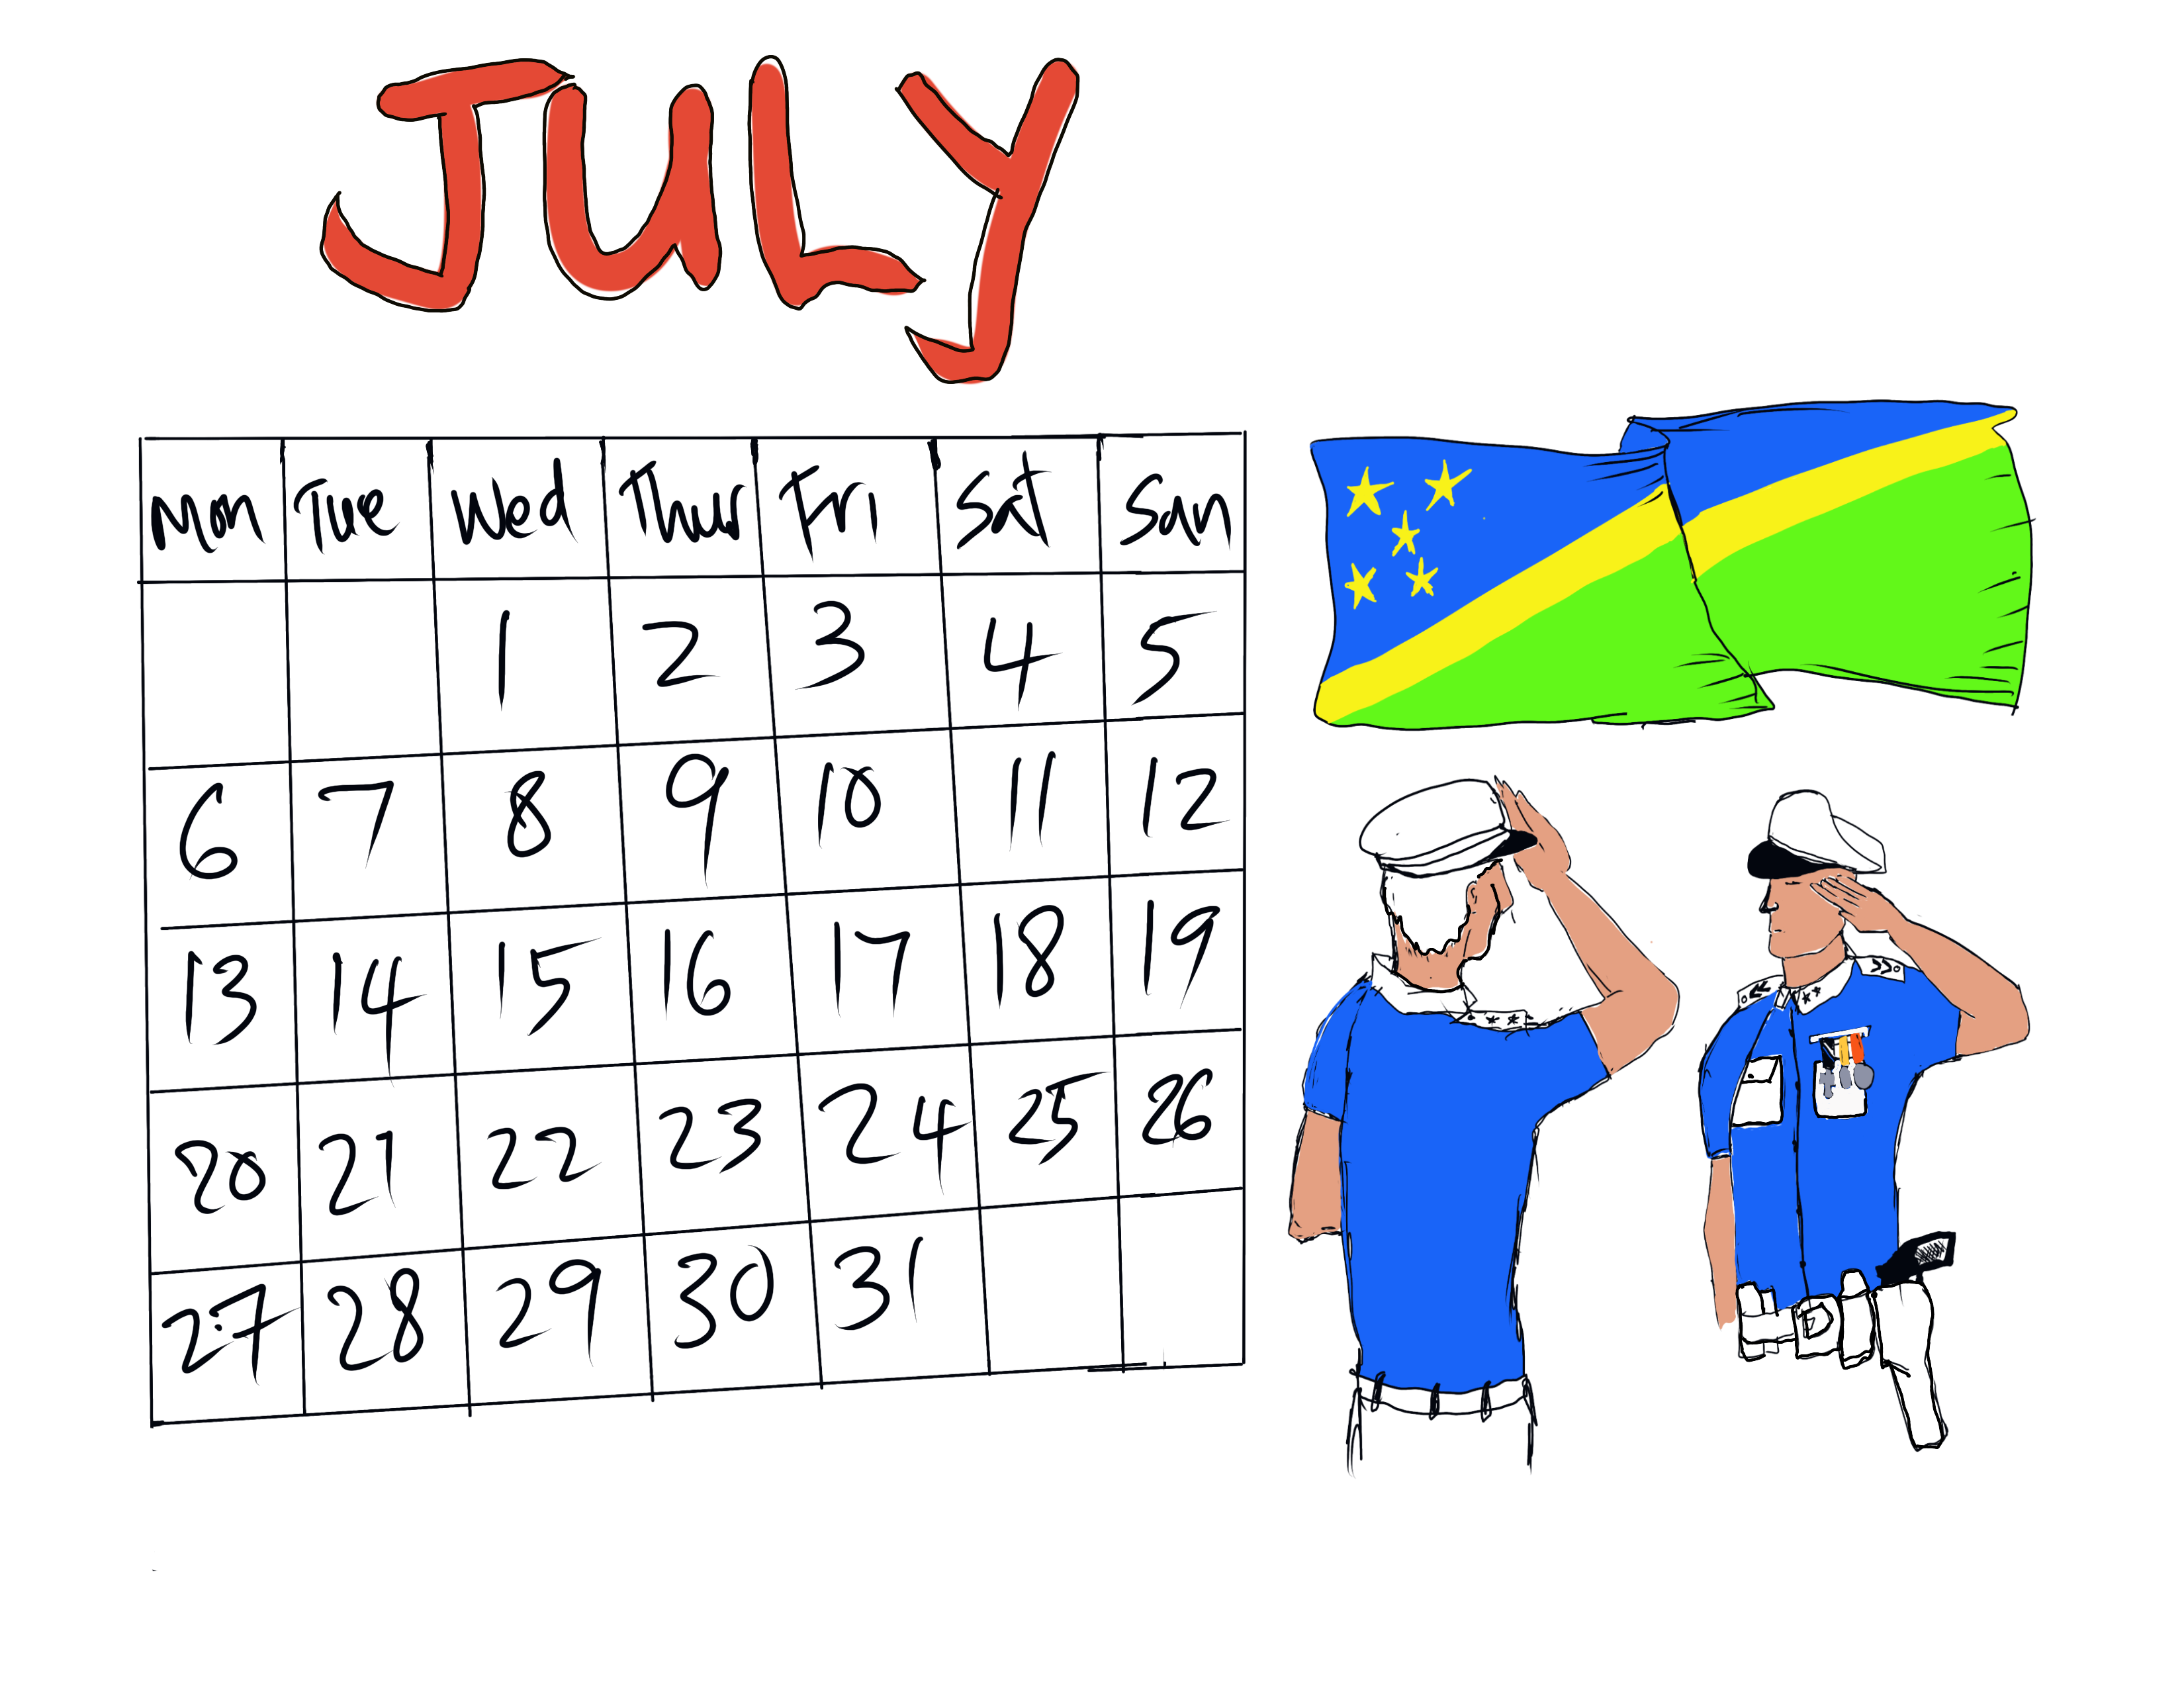 JULY
Mon Tue Wed Thur Fri Sat Sun
1 2 3 4 5
6 7 8 9 10 11 12
13 14 15 16 17 18 19
20 21 22 23 24 25 26
27 28 29 30 31